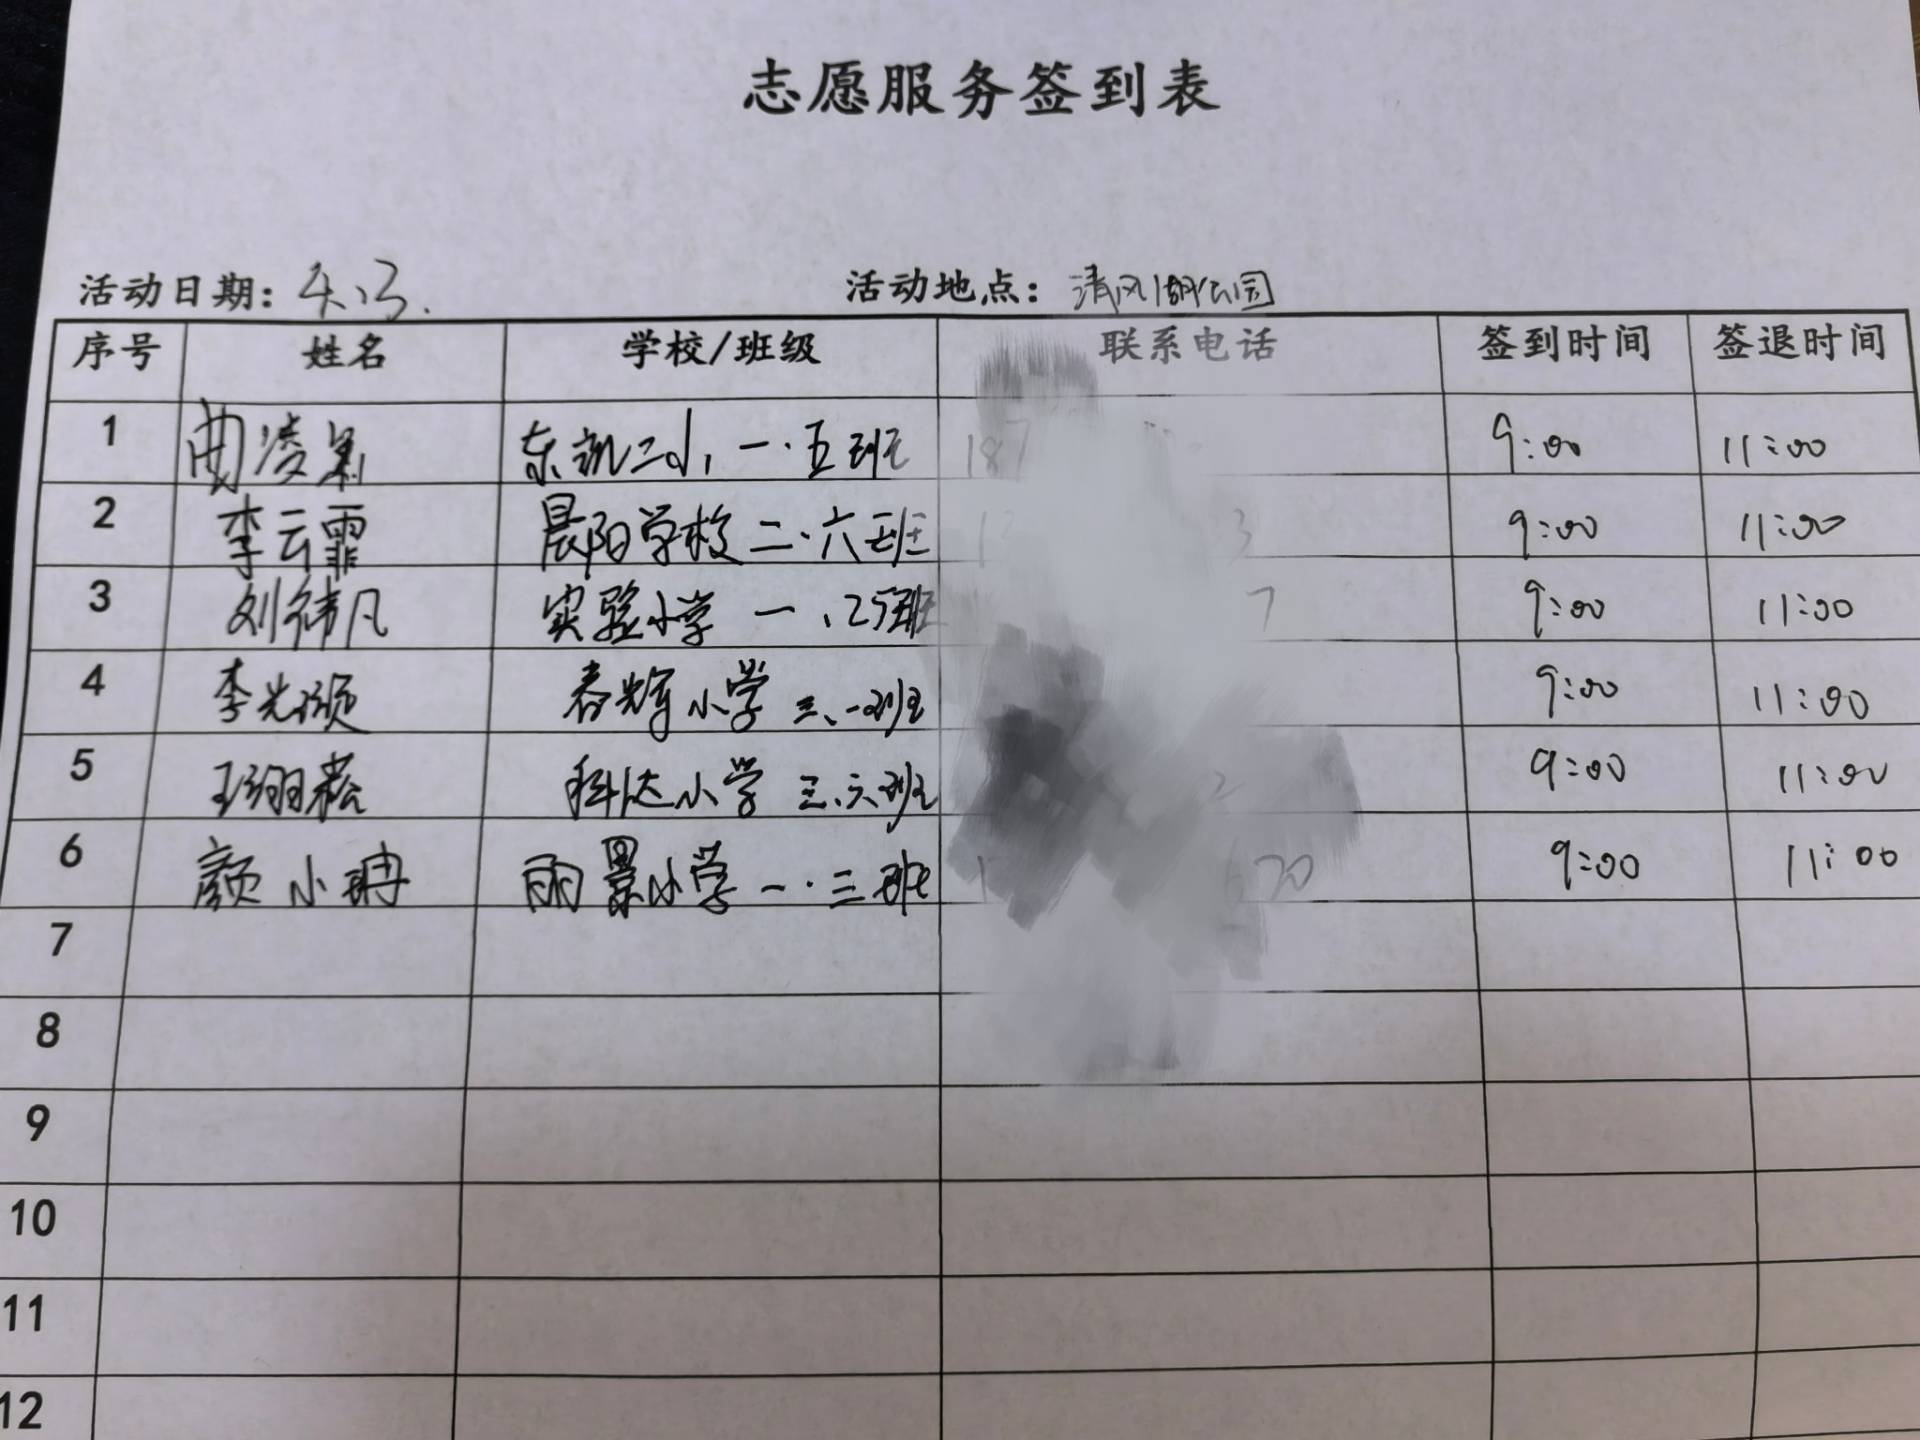 志愿服务签到表
活动日期: 4.13. 活动地点: 清风湖公园
序号 姓名 学校/班级 联系电话 签到时间 签退时间
1 曲凌 二小 一.五班 187 9:00 11:00
2 李云霏 晨阳学校 二.六班 1 3 9:00 11:00
3 刘祎凡 实验小学 一、25班 7 9:00 11:00
4 李光颂 春辉小学 三、一班 9:00 11:00
5 王翊菘 科达小学 三、六班 2 9:00 11:00
6 颜小珃 丽景小学 一.三班 1 670 9:00 11:00
7
8
9
10
11
12